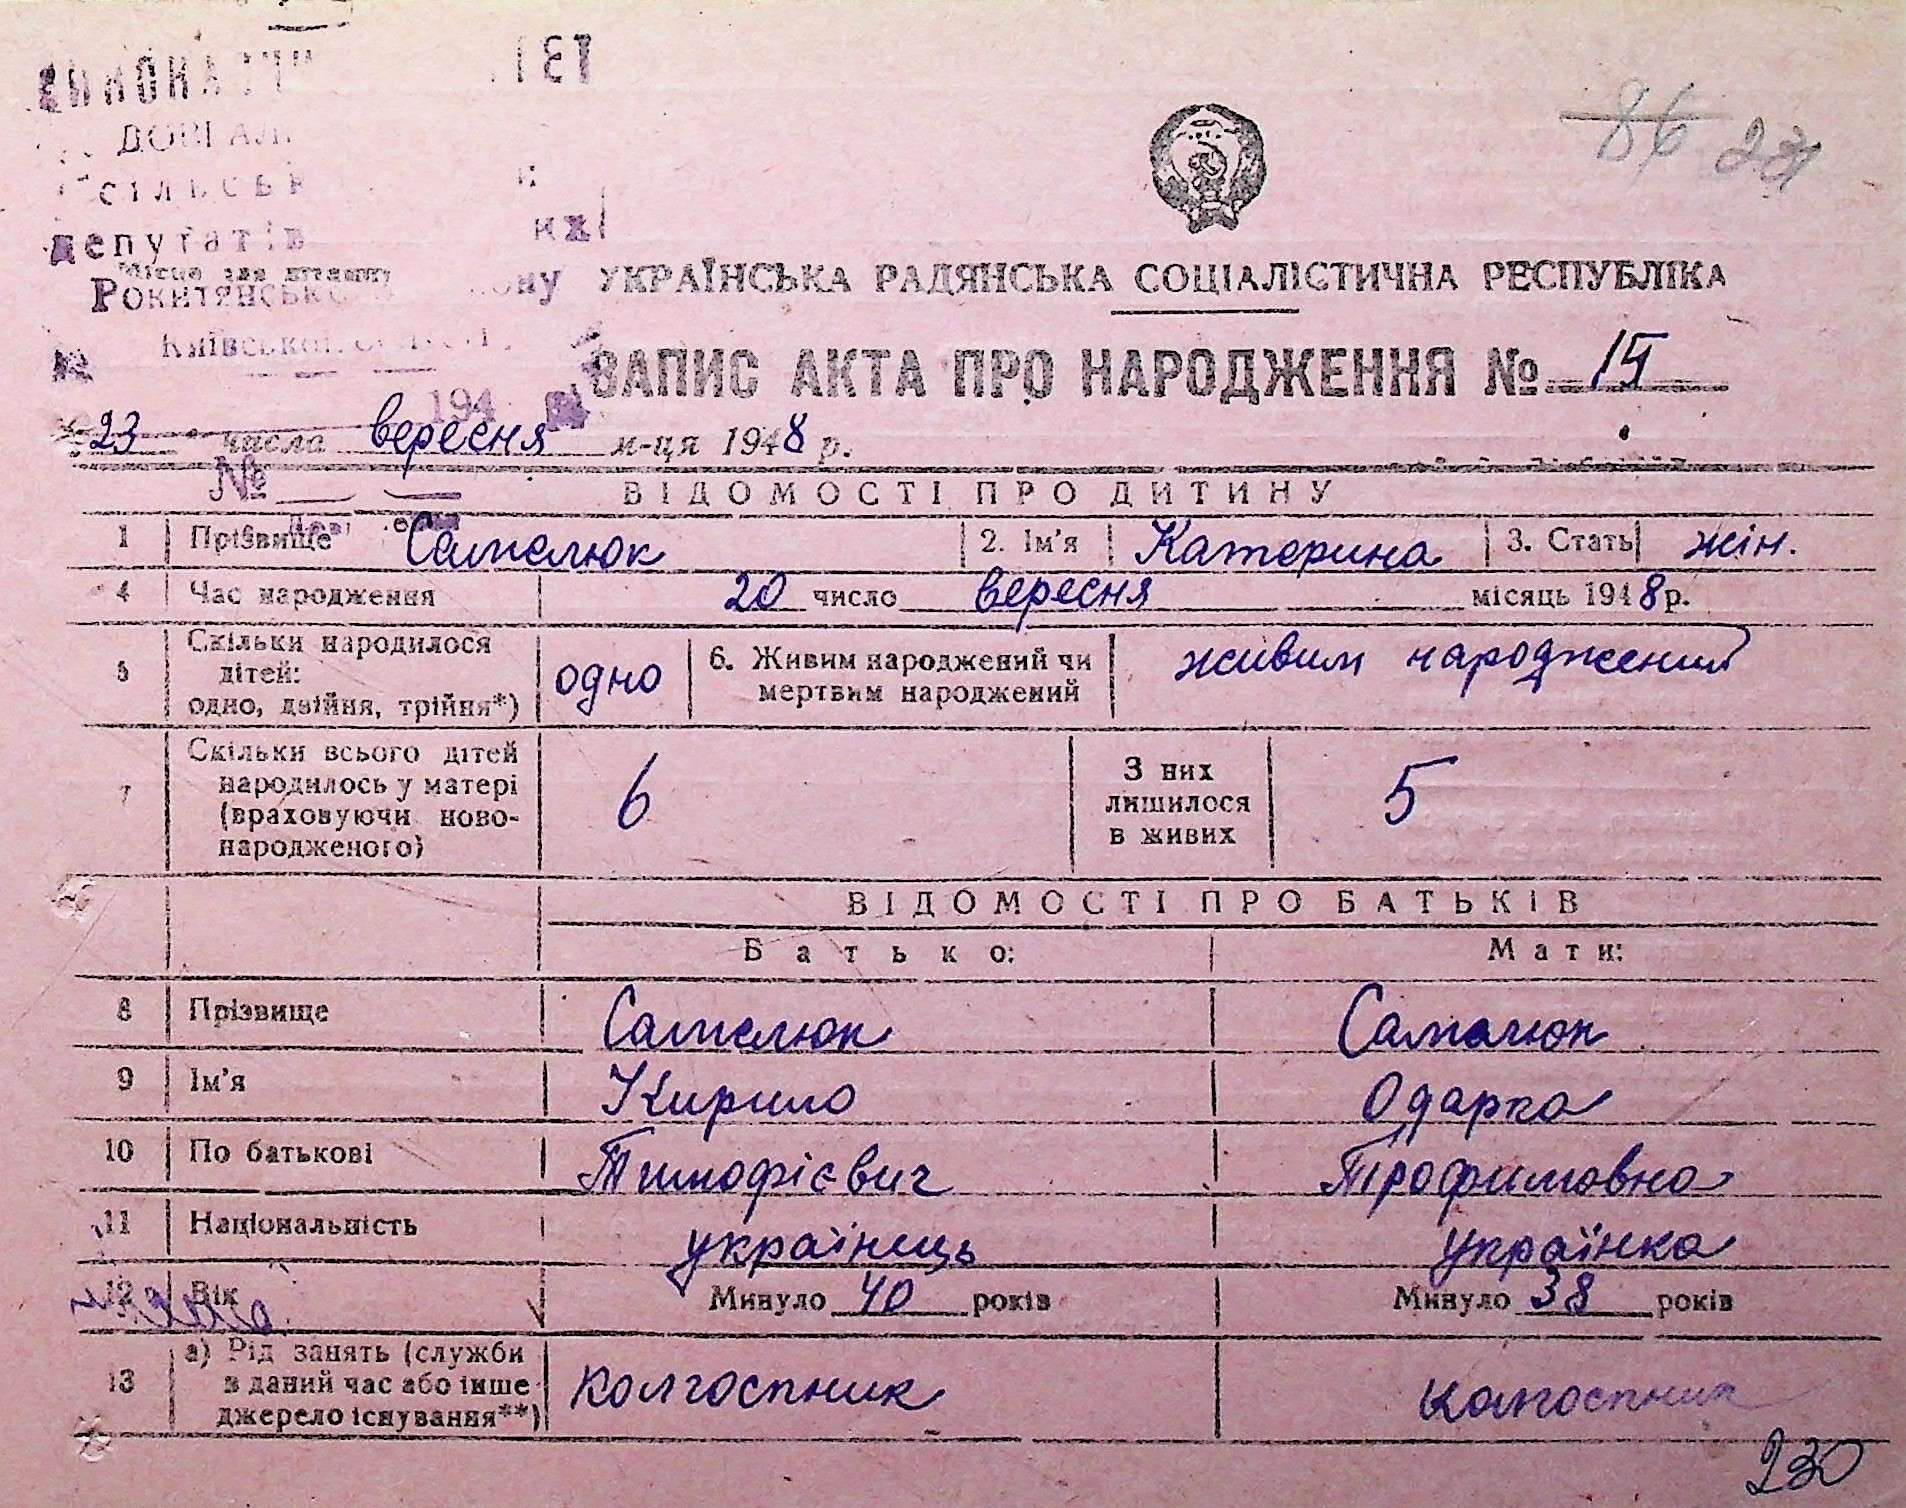 86 221
депутатів
Місце для штампу
Рокитянськ
Київської області
194
УКРАЇНСЬКА РАДЯНСЬКА СОЦІАЛІСТИЧНА РЕСПУБЛІКА
ЗАПИС АКТА ПРО НАРОДЖЕННЯ № 15
23 числа вересня м-ця 1948 р.
№
ВІДОМОСТІ ПРО ДИТИНУ
1 Прізвище Самелюк 2. Ім'я Катерина 3. Стать жін.
4 Час народження 20 число вересня місяць 1948 р.
5 Скільки народилося дітей: одно, двійня, трійня*) одно 6. Живим народжений чи мертвим народжений живим народжений
7 Скільки всього дітей народилось у матері (враховуючи новонародженого) 6 З них лишилося в живих 5
ВІДОМОСТІ ПРО БАТЬКІВ
Батько: Мати:
8 Прізвище Самелюк Самелюк
9 Ім'я Кирило Одарка
10 По батькові Тимофієвич Трофимовна
11 Національність українець українка
12 Вік Минуло 40 років Минуло 38 років
13 а) Рід занять (служби в даний час або інше джерело існування**) колгоспник колгоспник
230